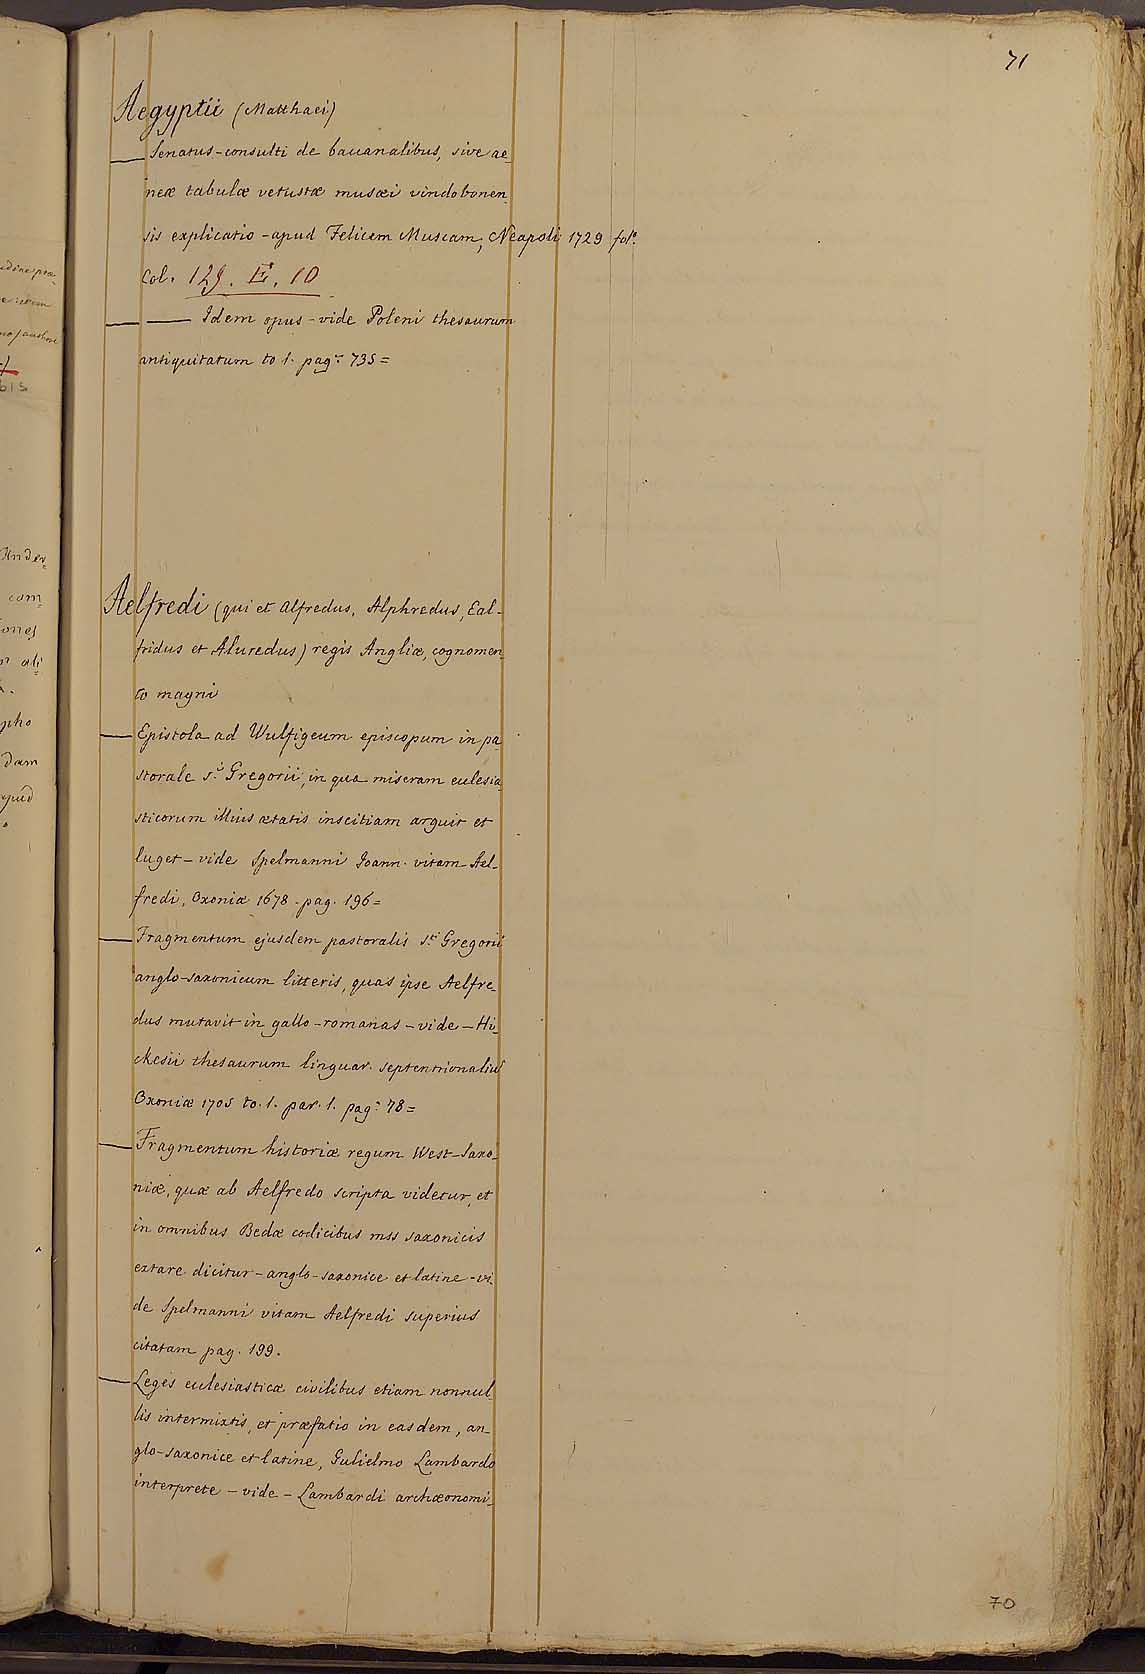 71
Aegyptii (Matthaei)
Senatus-consulti de baccanalibus, sive ae-
neæ tabulæ vetustæ musæi vindobonen
sis explicatio - apud Felicem Muscam, Neapoli 1729 fol.º
Col. 129. E. 10
Idem opus - vide Poleni thesaurum
antiquitatum to 1. pag. 735=
Aelfredi (qui et Alfredus, Alphredus, Eal-
fridus et Aluredus) regis Angliæ, cognomen-
to magni
Epistola ad Wulfigeum episcopum in pa
storale s.i Gregorii, in qua miseram ecclesia
sticorum illius ætatis inscitiam arguit et
luget - vide Spelmanni Joann. vitam Ael-
fredi, Oxoniæ 1678 - pag. 196=
Fragmentum ejusdem pastoralis s.i Gregorii
anglo-saxonicum litteris, quas ipse Aelfre-
dus mutavit in gallo-romanas - vide - Hi-
ckesii thesaurum linguar. septentrionaliu
Oxoniæ 1705 to. 1. par. 1. pag. 78=
Fragmentum historiæ regum West-Saxo-
niæ, quæ ab Aelfredo scripta videtur, et
in omnibus Bedæ codicibus mss saxonicis
extare dicitur - anglo-saxonice et latine - vi-
de Spelmanni vitam Aelfredi superius
citatam pag. 199.
Leges ecclesiasticæ civilibus etiam nonnul
lis intermixtis, et præfatio in easdem, an-
glo-saxonice et latine, Gulielmo Lambardo
interprete - vide - Lambardi archæonomi-
70